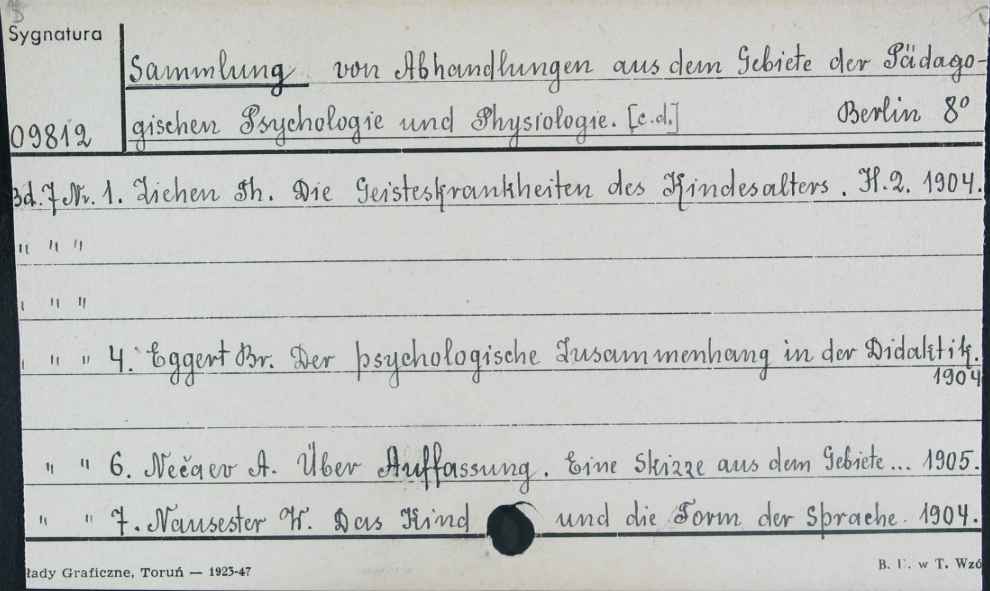 Sygnatura
Sammlung von Abhandlungen aus dem Gebiete der Pädago-
gischen Psychologie und Physiologie. [c.d.] Berlin 8°
09812
Bd. 7 Nr. 1. Ziehen Th. Die Geisteskrankheiten des Kindesalters. H.2. 1904.
" " "
" "
" " 4. Eggert Br. Der psychologische Zusammenhang in der Didaktik.
1904
" " 6. Nečaev A. Über Auffassung. Eine Skizze aus dem Gebiete... 1905.
" " 7. Nausester W. Das Kind und die Form der Sprache. 1904.
łady Graficzne, Toruń — 1925-47
B. U. w T. Wzó